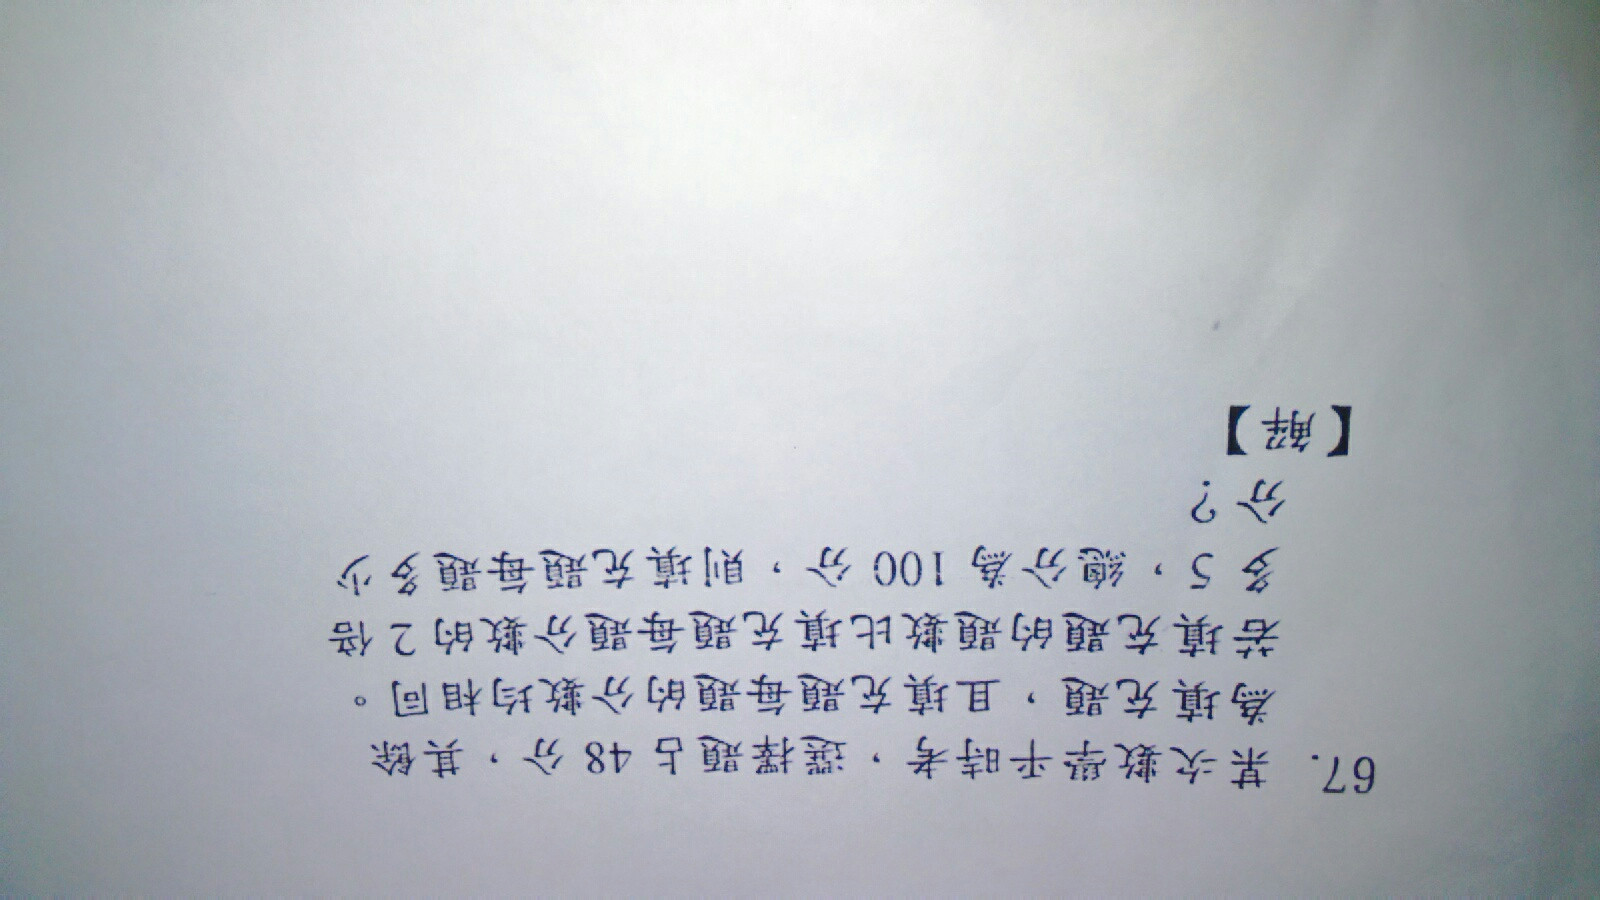 67. 某次數學平時考，選擇題占 48 分，其餘
為填充題，且填充題每題的分數均相同。
若填充題的題數比填充題每題分數的 2 倍
多 5，總分為 100 分，則填充題每題多少
分？
【解】